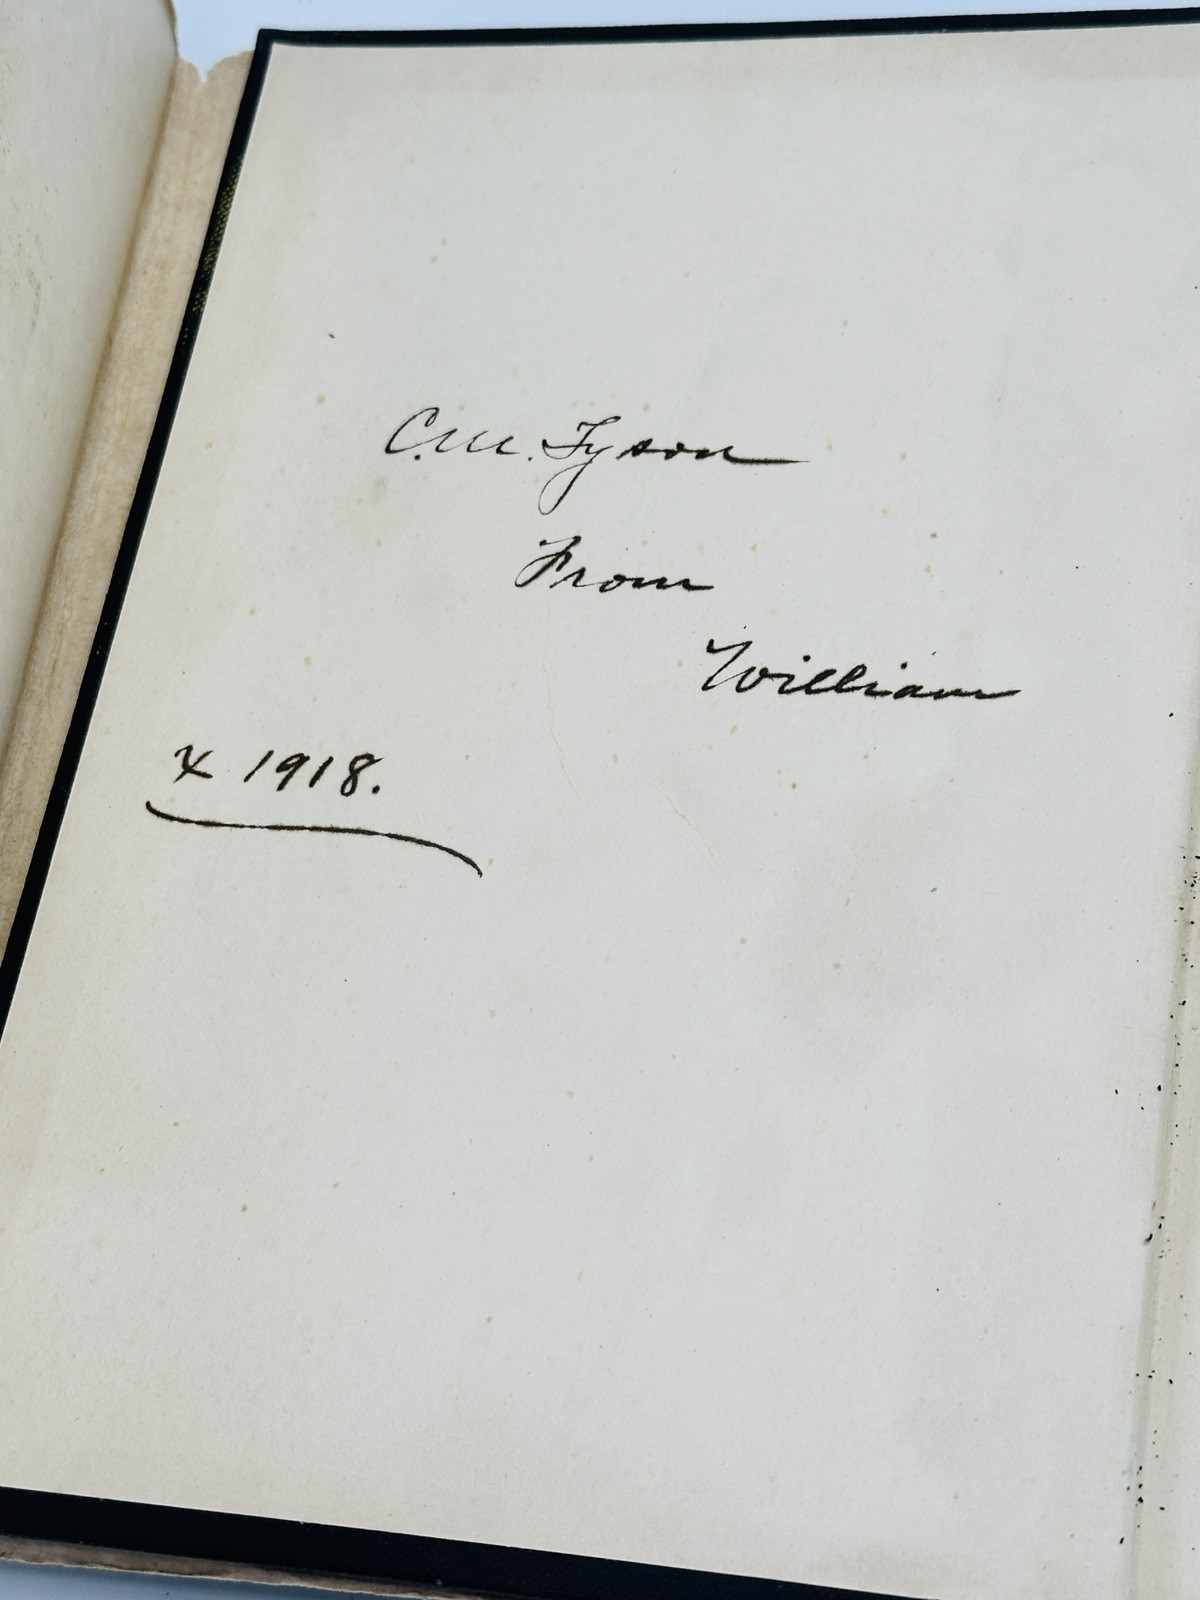 C.M. Tyson
From
William
X 1918.